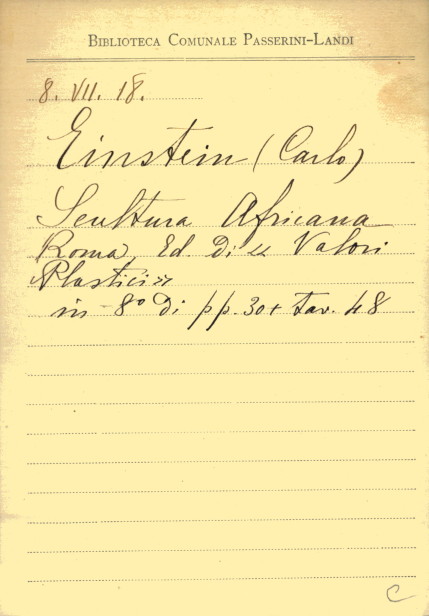 BIBLIOTECA COMUNALE PASSERINI-LANDI
8. VII. 18.
Einstein (Carlo)
Scultura Africana
Roma, Ed. Di « Valori
Plastici »
in 8° Di pp. 30 + tav. 48
C